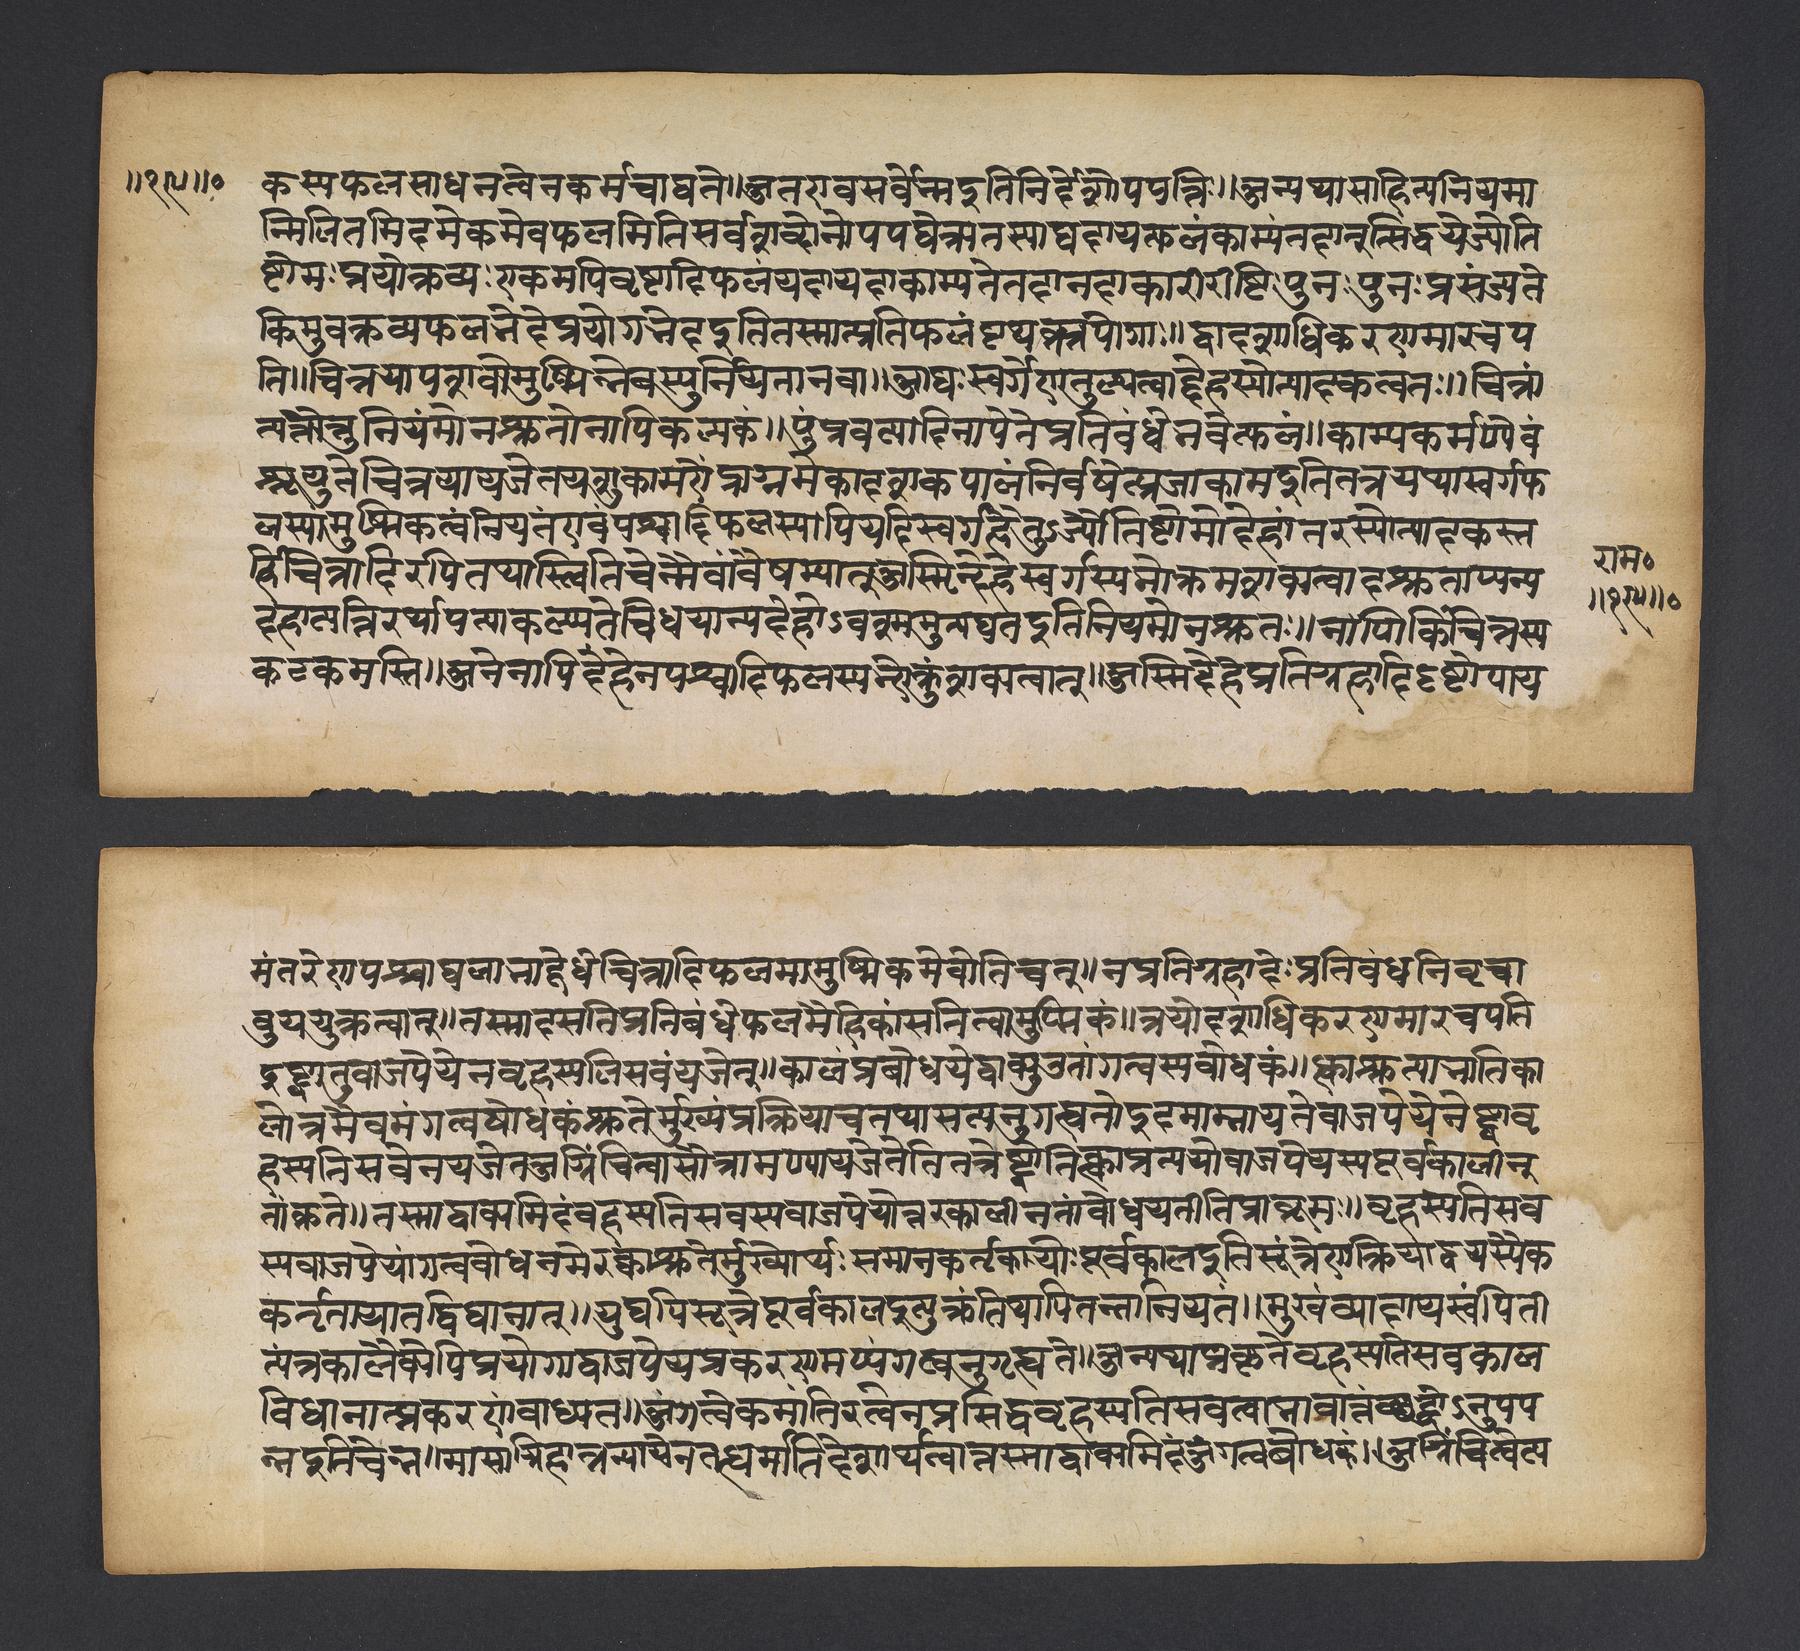 ॥१९५॥०
कस्यफलसाधनत्वेनकर्मचोद्यते॥अतएवसर्वेभ्यइतिनिर्देशोपपत्तिः॥अन्यथासाहित्यनियमा
न्मिलितमिदमेकमेवफलमितिसर्वशब्दोनोपपद्येतअतस्याद्यदायत्फलंकाम्यंतदातत्सिद्धयेज्योति
ष्टोमःप्रयोक्तव्यःएकमपिवृष्ट्यादिफलंयदायदाकाम्यतेतदातदाकारीरीष्टिःपुनःपुनःप्रसंज्यते
किमुवक्तव्यफलभेदेप्रयोगभेदइतितस्मात्प्रतिफलंपृथक्प्रयोगाः॥द्वादशाधिकरणमारचय
ति॥चित्रयापशवोमुष्मिन्नेवस्युर्नियतानवा॥आद्यःस्वर्गेणतुल्यत्वाद्देहस्योत्पादकत्वतः॥चित्रां
त्पत्तौतुनियमोनश्रुतोनापिकल्पकं॥पुंप्रवृत्त्यादिनापेतेप्रतिबंधेभवेत्फलं॥काम्यकर्मण्येवं
श्रूयतेचित्रयायजेतपशुकामऐंद्राग्नमेकादशकपालंनिर्वपेत्प्रजाकामइतितत्रयथास्वर्गफ
लस्यामुष्मिकत्वंनियतंएवंपश्वादिफलस्यापियदिस्वर्गहेतुर्ज्योतिष्टोमोदेहांतरस्योत्पादकस्त
र्हिचित्रादिरपितथास्त्वितिचेन्मैवंवैषम्यात्अस्मिन्देहेस्वर्गस्यभोक्तुमशक्यत्वादश्रुताप्यन्य
देहोत्पत्तिरर्थापत्त्याकल्प्यतेचित्रयान्यदेहोऽवश्यमुत्पद्यतइतिनियमोनश्रुतः॥नापिकिंचित्तस्य
कल्पकमस्ति॥अनेनापिदेहेनपश्वादिफलस्यभोक्तुंशक्यत्वात्॥अस्मिन्देहेप्रतिग्रहादिदृष्टोपाय
राम०
॥१९५॥०
मंतरेणपश्वाद्यलाभाद्वैधंचित्रादिफलमामुष्मिकमेवेतिचेत्॥नप्रतिग्रहादेःप्रतिबंधनिवृत्त्या
वुपयुक्तत्वात्॥तस्मादसतिप्रतिबंधेफलमैहिकंसतित्वामुष्मिकं॥त्रयोदशाधिकरणमारचयति
इष्ट्वातुवाजपेयेनबृहस्पतिसवंयजेत्॥कालंप्रबोधयेद्वाक्यमुतांगत्वस्यबोधकं॥त्काश्रुत्याभातिका
लोत्रमैवमंगत्वबोधकंश्रुतेर्मुख्यंप्रक्रियाचतथासत्यनुगत्वतोइदमाम्नायतेवाजपेयेनेष्ट्वाबृ
हस्पतिसवेनयजेतअग्निंचित्वासौत्रामण्यायजेतेतितत्रेष्ट्वेतित्क्वाप्रत्ययोवाजपेयस्यपूर्वकालीन
तांब्रूते॥तस्माद्वाक्यमिदंबृहस्पतिसवस्यवाजपेयोत्तरकालीनतांबोधयतीतिप्राप्ब्रूमः॥बृहस्पतिसव
स्यवाजपेयांगत्वबोधनमेवत्क्वाश्रुतेर्मुख्योर्थःसमानकर्तृकयोःपूर्वकालइतिसूत्रेणक्रियाद्वयस्यैक
कर्तृतायांतद्विधानात्॥यद्यपिसूत्रेपूर्वकालइत्युक्तंतथापितन्नानियतं॥मुखंव्यादायस्वपिती
त्यत्रकालैक्येपिप्रयोगाद्वाजपेयप्रकरणमप्यंगत्वेनुगृह्यते॥अन्यथाप्रकृतेबृहस्पतिसवकाल
विधानात्प्रकरणंबाध्येत॥अंगत्वेकर्मांतरत्वेनप्रसिद्धबृहस्पतिसवत्वाभावात्तच्छब्दोऽनुपप
न्नइतिचेन्न॥मासाग्निहोत्रन्यायेनतद्धर्मातिदेशार्थत्वात्तस्माद्वाक्यमिदंअंगत्वबोधकं॥अग्निंचित्वेत्य